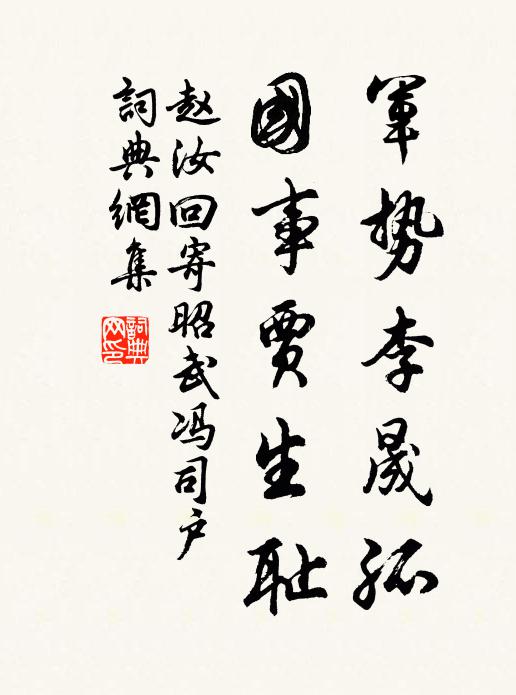 軍势李晟孤
國事賈生耻
赵汝回寄昭武冯司户
詞典網集
詞典网印